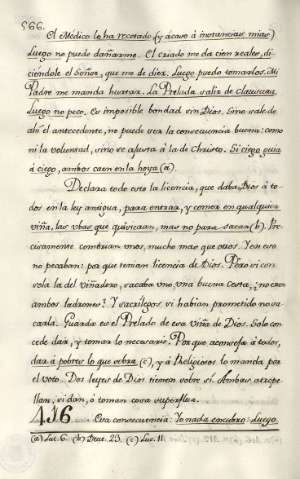 566.
El Médico lo ha recetado (y acaso á instancias mias)
Luego no puedo dañarme. El criado me da cien reales, di
ciendole el Señor, que me de diez. Luego puedo tomarlos. Mi
Padre me manda hurtar. La Prelada salir de clausura.
Luego no peco. Es imposible bondad sin Dios. Sino sale de
ahi el antecedente, no puede ser la consecuencia buena: como
ni la voluntad, sino se ajusta á la de Christo. Si ciego guia
á ciego, ambos caen en la hoya (a).
Declara todo esto la licencia, que daba Dios á to
dos en la ley antigua, para entrar, y comer en qualquier
viña, las ubas que quisieran, mas no para sacar (b). Pre
cisamente comerian unos, mucho mas que otros. Y en eso
no pecaban: por que tenian licencia de Dios. Pero si con
sola la del viñadero, sacaba uno una buena cesta, ¿no eran
ambos ladrones? Y sacrilegos si habian prometido no sa
carla. Guarda es el Prelado de esa viña de Dios. Solo con
cede dar, y tomar lo necesario. Porque aconseja á todos,
dar á pobres lo que sobra (c), y á Religiosos lo manda por
el voto. Dos leyes de Dios tienen sobre sí. Ambas atrope
llan, si dan, ó toman cosa superflua.
416 Otra consecuencia: Yo nada encubro: Luego
(a) Luc. 6. (b) Deut. 23. (c) Luc. 11.